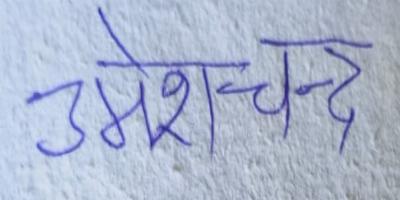 उमेशचन्द्र